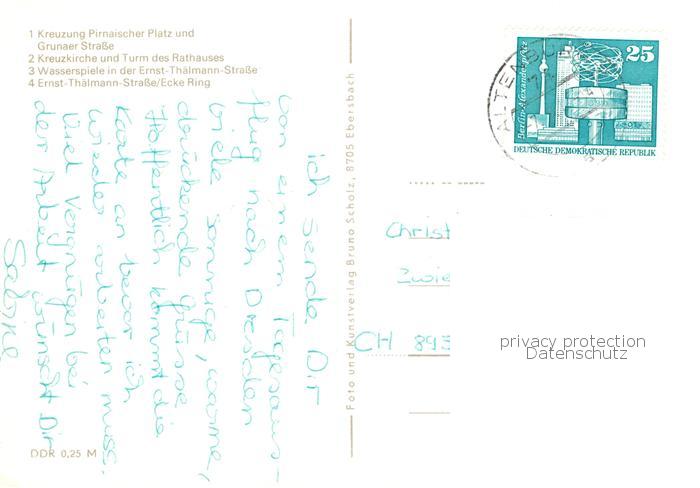 1 Kreuzung Pirnaischer Platz und
Grunaer Straße
2 Kreuzkirche und Turm des Rathauses
3 Wasserspiele in der Ernst-Thälmann-Straße
4 Ernst-Thälmann-Straße/Ecke Ring
ich sende Dir
von einem Tagesaus-
flug nach Dresden
viele sonnige, warme,
drückende Grüsse
Hoffentlich kommt die
Karte an bevor ich
wieder arbeiten muss.
Viel Vergnügen bei
der Arbeit wünscht Dir
Sabine
DDR 0,25 M
Foto und Kunstverlag Bruno Scholz, 8705 Ebersbach
ALTENBU
Berlin-Alexanderplatz
25
DEUTSCHE DEMOKRATISCHE REPUBLIK
Christ
Zwie
CH 893
privacy protection
Datenschutz